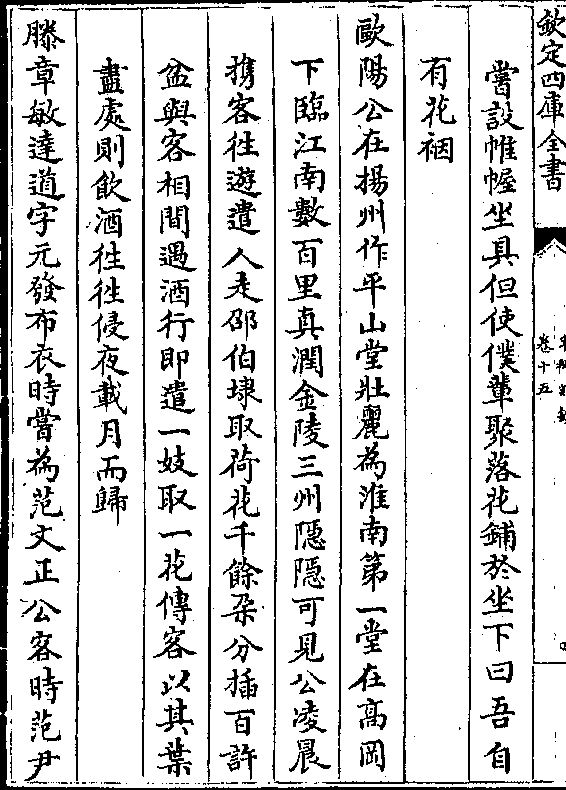 欽定四庫全書
卷十五
嘗設帷幄坐具但使僕輩聚落花鋪於坐下曰吾自
有花裀
歐陽公在揚州作平山堂壯麗為淮南第一堂在髙岡
下臨江南數百里真潤金陵三州隠隠可見公凌晨
携客往遊遣人走邵伯埭取荷花千餘朶分插百許
盆與客相間遇酒行即遣一妓取一花傳客以其葉
盡處則飲酒往往侵夜載月而歸
滕章敏達道字元發布衣時嘗為范文正公客時范尹